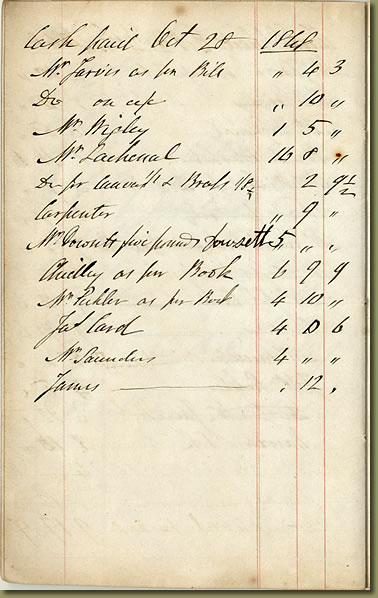 Cash paid Oct 28 1868
Mr Jarvis as per Bill " 4 3
Do on a/c " 10 "
Mr Wigley 1 5 "
Mr Lachenal 16 8 "
Do for & Brass 2 9½
Carpenter " 9 "
Mr Dowsett five pounds Dowsett 5 " "
Chidley as per Book 6 9 9
Mr Pichler as per Book 4 10 "
Jas Card 4 0 6
Mr Saunders 4 " "
James 12 "